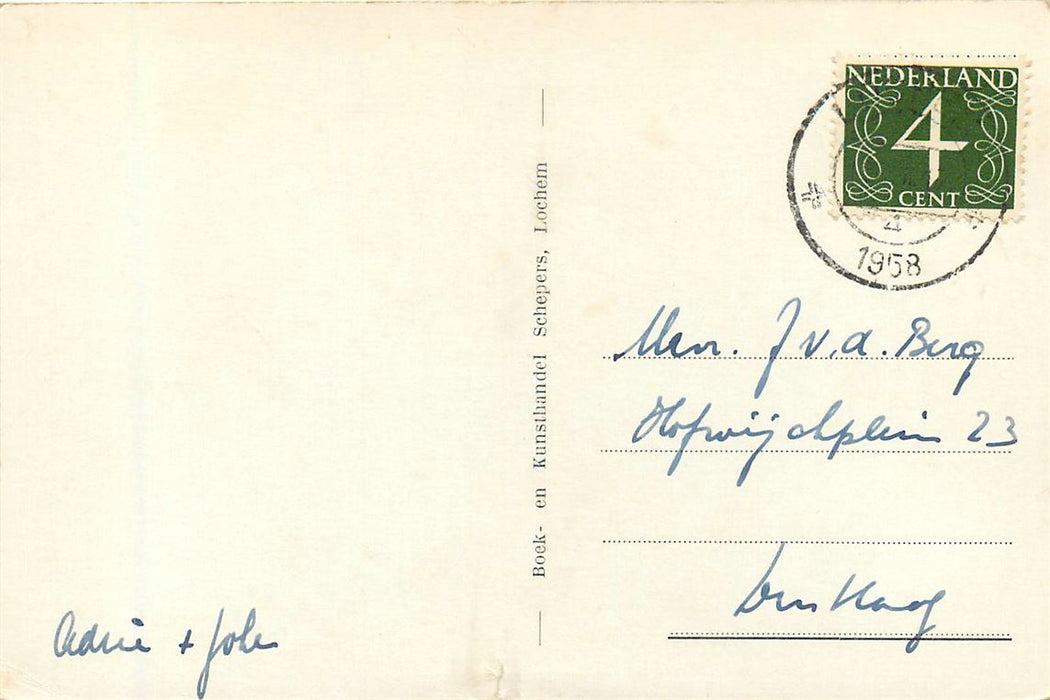 NEDERLAND
4
CENT
4
1958
Boek- en Kunsthandel Schepers, Lochem
Mevr. J v.d. Berg
Hofwijckplein 23
Den Haag
Adrie + Joke